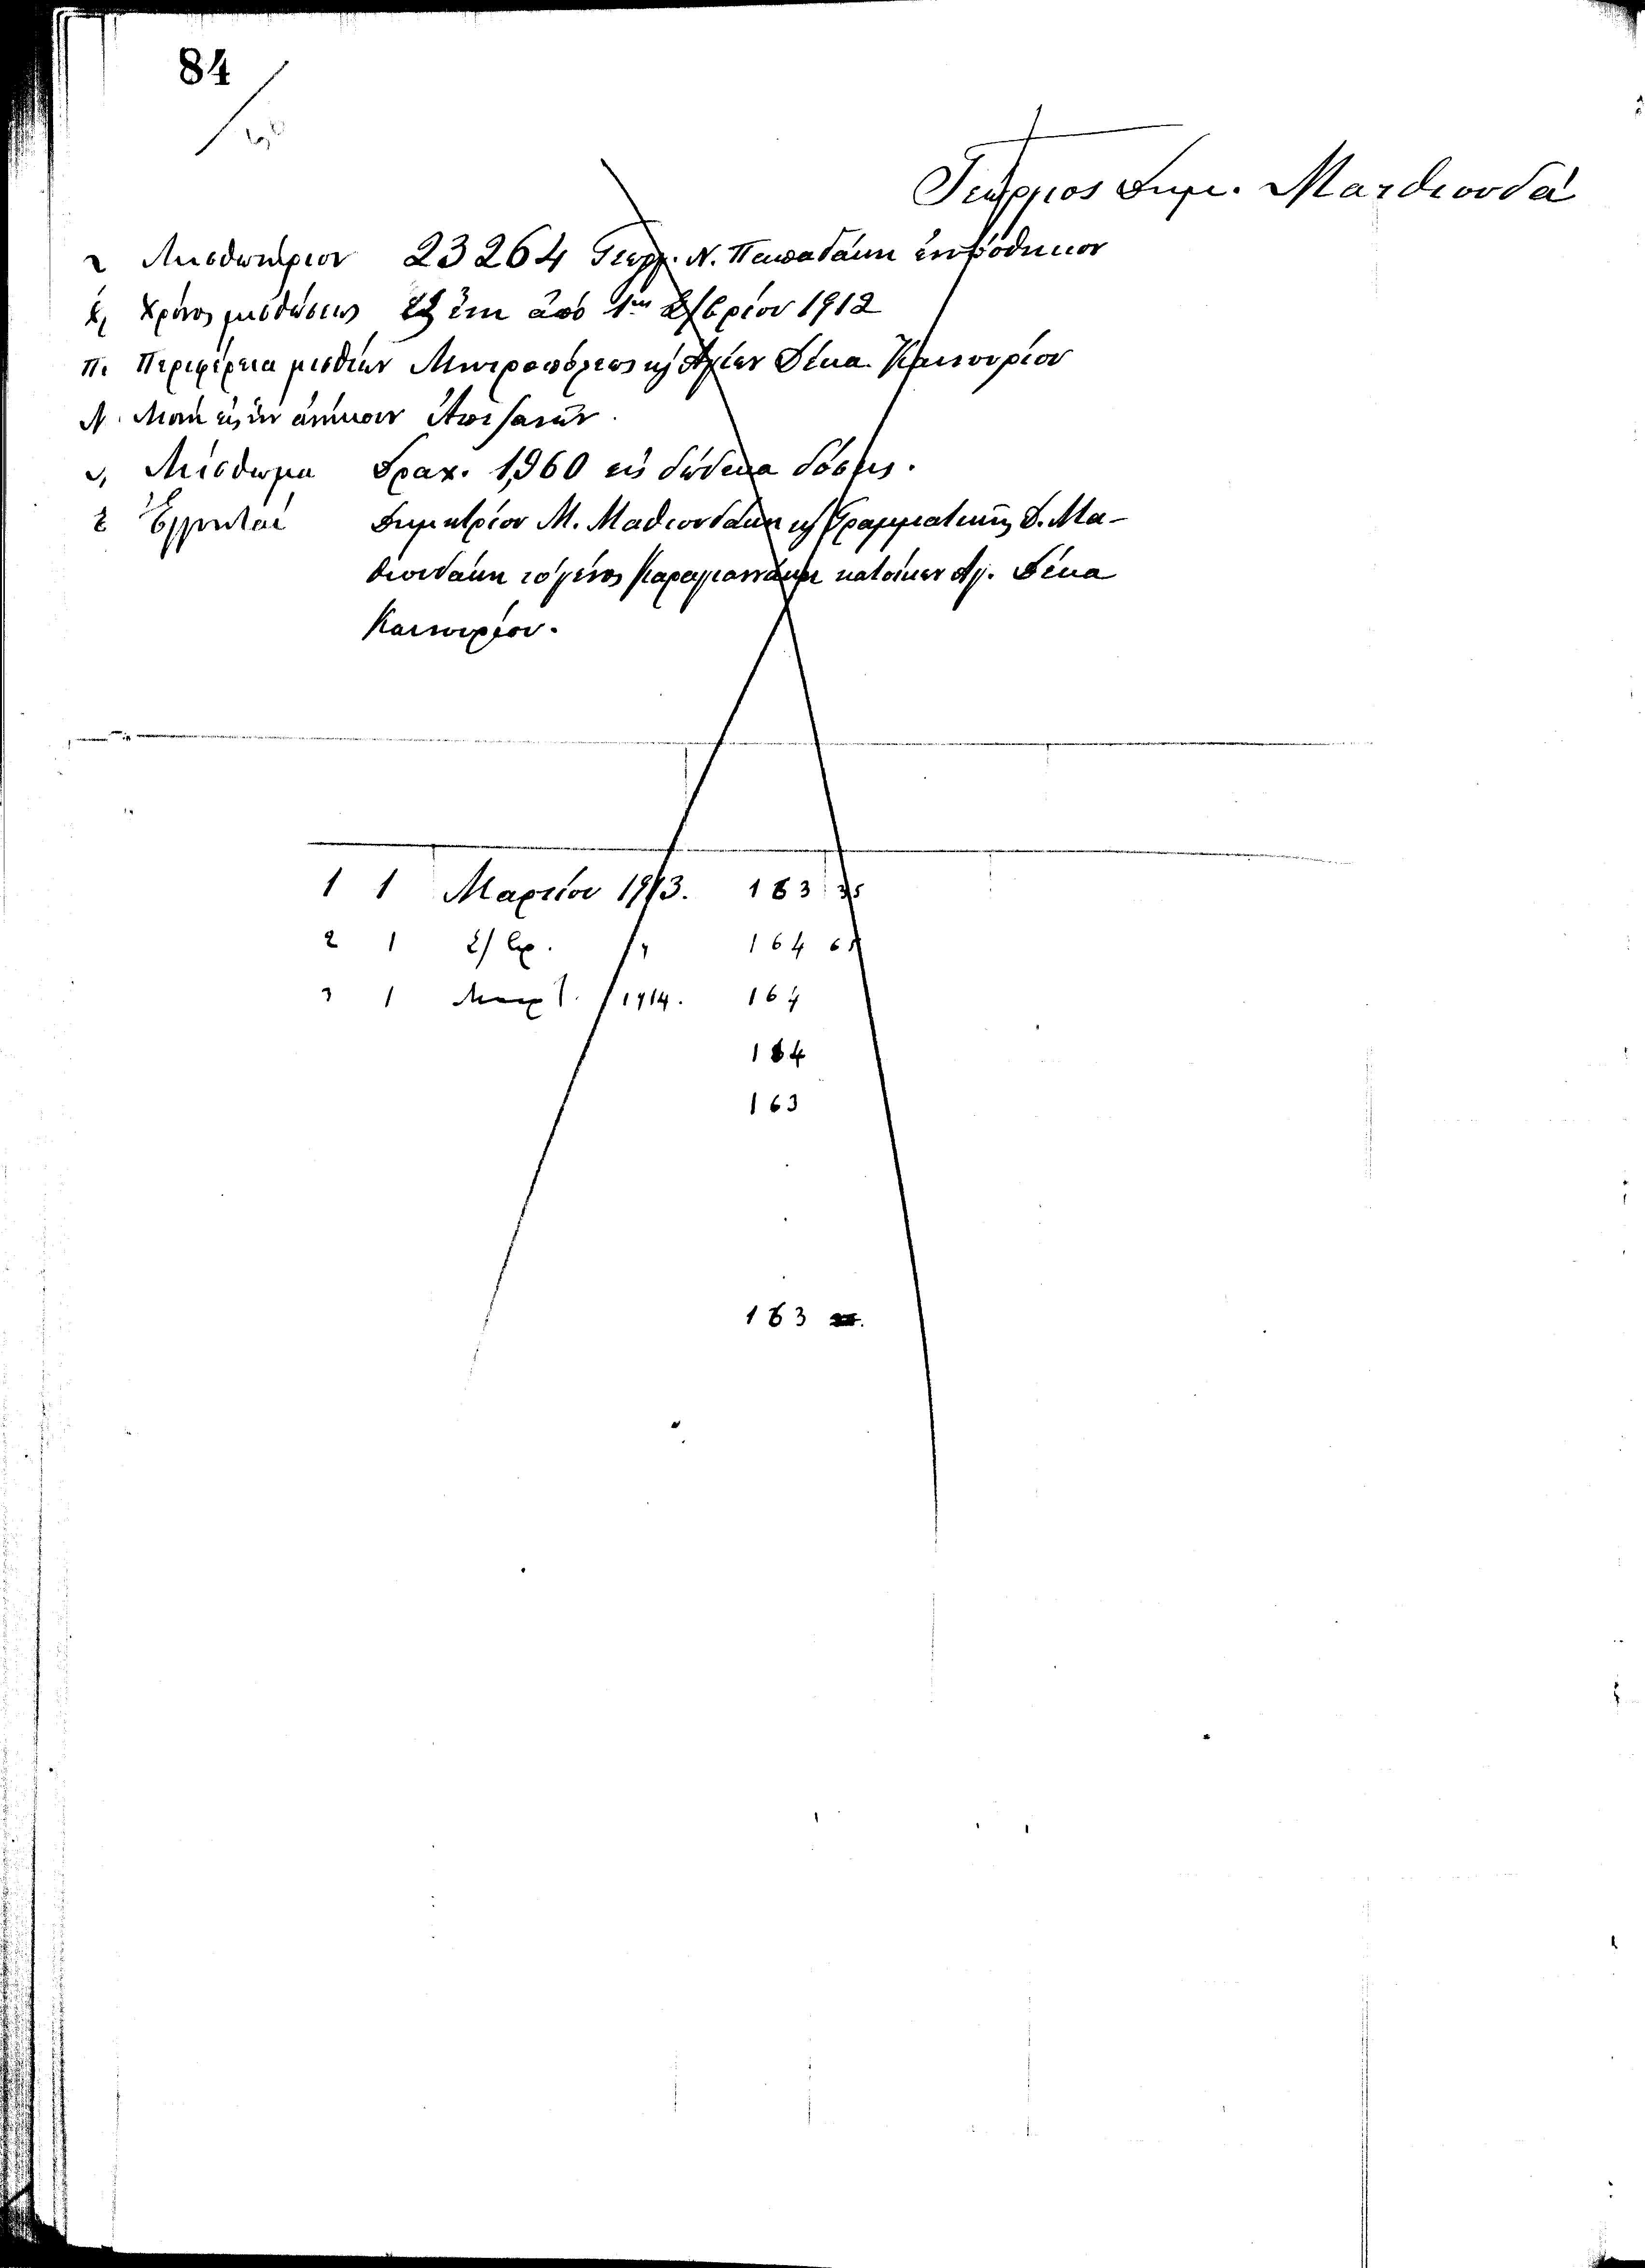 84
Γεώργιος Δημ. Μαθιουδά
Μισθωτήριον 23264 Γεωρ. Ν. Παπαδάκη ἐνυπόθηκον
Χρόνος μισθώσεως ἓξ ἔτη ἀπό 1ης 7/βρίου 1912
Π. Περιφέρεια μισθίων Μητροπόλεως κ Ἁγίων Δέκα Καινουρίου
Μ. Μονή εἰς ἣν ἀνήκουν Ἀπεζανῶν.
Μίσθωμα Δραχ. 1,960 εἰς δώδεκα δόσεις.
Ἐγγυηταί Δημητρίου Μ. Μαθιουδάκη κ Γραμματικῆς Δ. Μα-
θιουδάκη τό γένος Καραγιαννάκη κατοίκων Ἁγ. Δέκα
Καινουρίου.
1 1 Μαρτίου 1913. 163 35
2 1 " 164 65
3 1 Μαρτ. 1914. 164
164
163
163